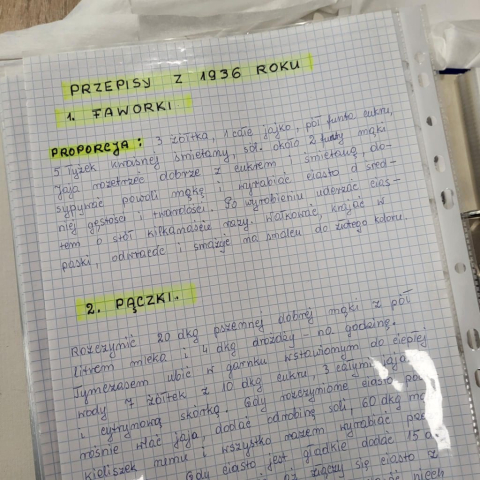 PRZEPISY Z 1936 ROKU
1. FAWORKI
PROPORCJA: 3 żółtka, 1 całe jajko, pół funta cukru,
5 łyżek kwaśnej śmietany, sól. około 2 funty mąki
Jaja rozetrzeć dobrze z cukrem i śmietaną, do-
sypywać powoli mąkę i wyrabiać ciasto o śred-
niej gęstości i twardości. Po wyrobieniu uderzać cias-
tem o stół kilkanaście razy. Wałkować, krajać w
paski, odwracać i smażyć na smalcu do żółtego koloru.
2. PĄCZKI.
Rozczynić 20 dkg pszennej dobrej mąki z pół
litrem mleka i 4 dkg drożdży - na godzinę.
Tymczasem ubić w garnku wstawionym do ciepłej
wody 7 żółtek z 10 dkg cukru, 3 całymi jaja
i cytrynową skórką. Gdy rozczynione ciasto pod
rośnie wlać jaja, dodać odrobinę soli, 60 dkg mą
kieliszek rumu i wszystko razem wyrabiać
Gdy ciasto jest gładkie dodać 15 d
się ciasto z
niech